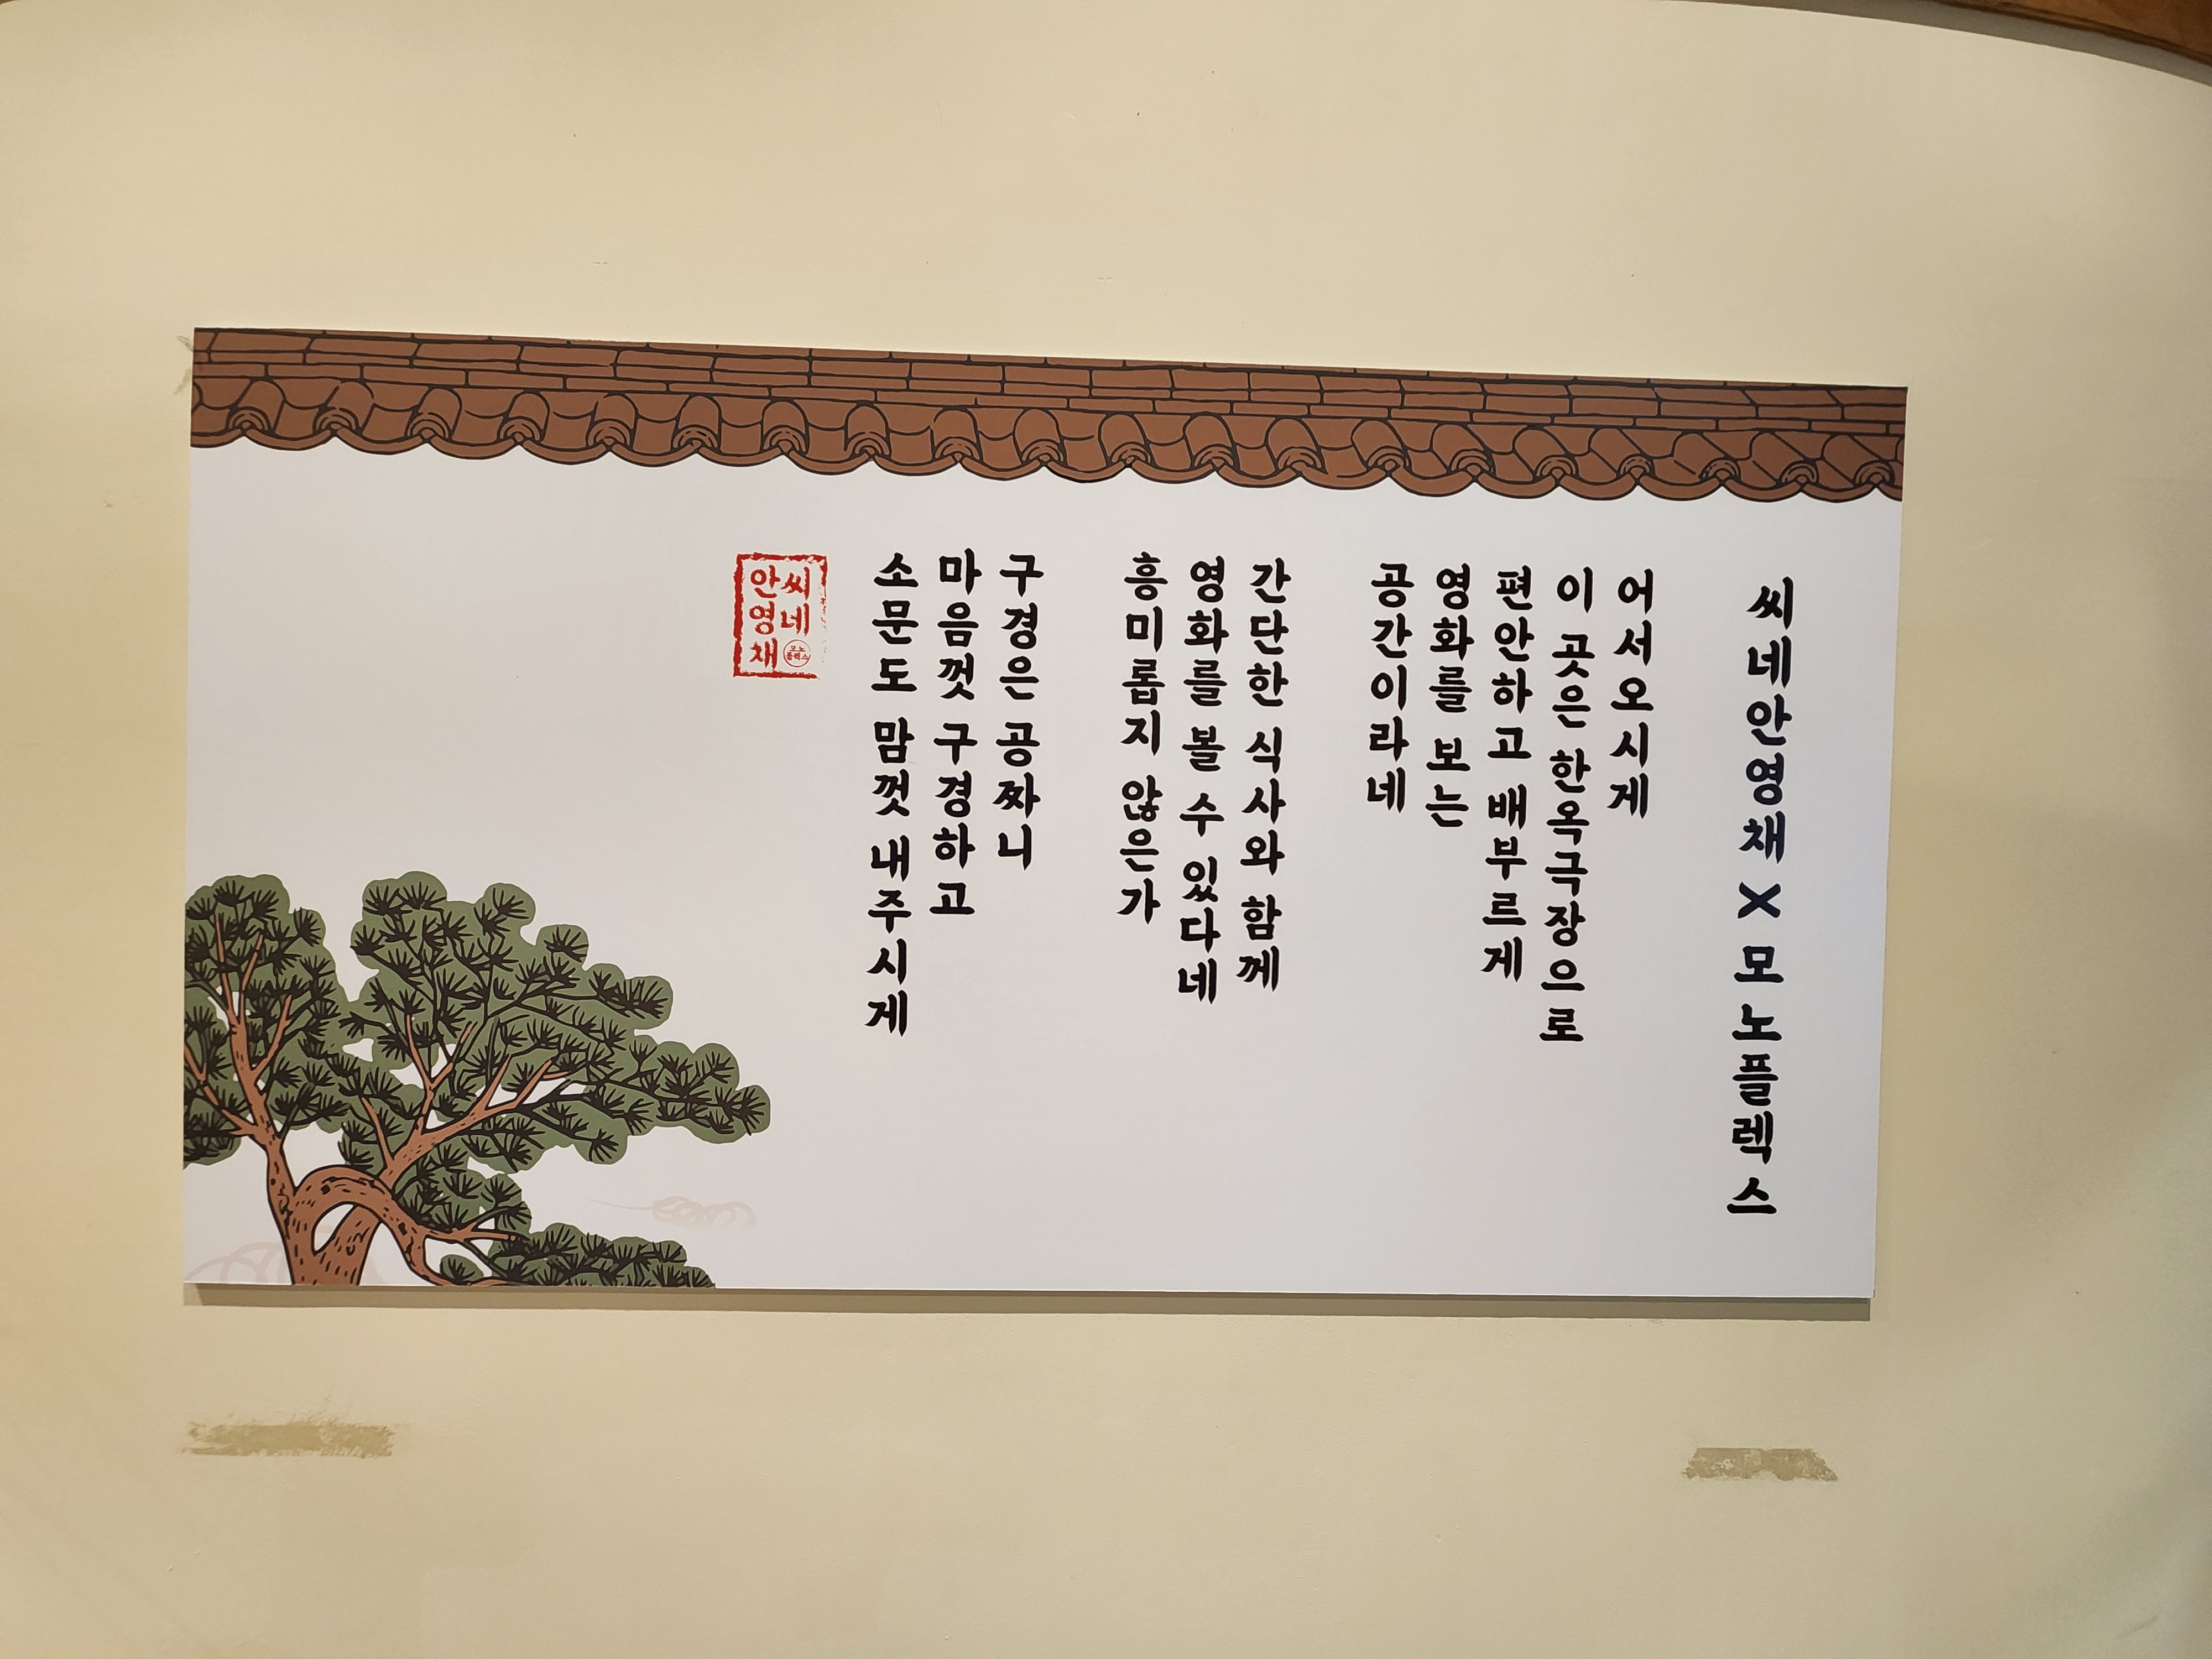 씨네안영채 X 모노플렉스
어서오시게
이 곳은 한옥극장으로
편안하고 배부르게
영화를 보는
공간이라네
간단한 식사와 함께
영화를 볼 수 있다네
흥미롭지 않은가
구경은 공짜니
마음껏 구경하고
소문도 맘껏 내주시게
씨네
모노
플렉스
안영채